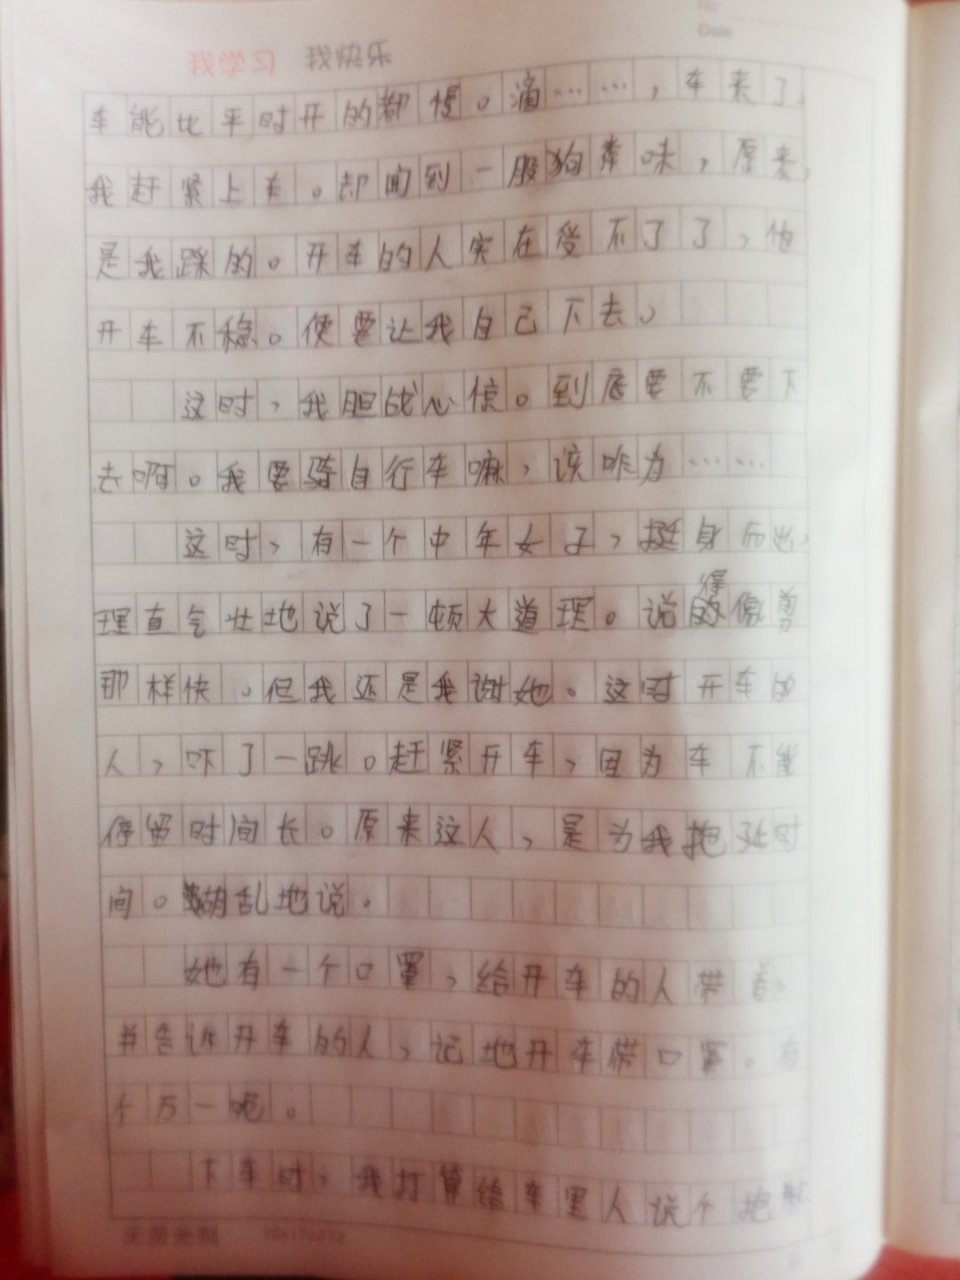 No
Date
我学习 我快乐
车能比平时开的都慢。滴……,车来了,
我赶紧上车。却闻到一股狗粪味,原来,
是我踩的。开车的人实在受不了了,怕
开车不稳。便要让我自己下去。
这时,我胆战心惊。到底要不要下
去啊。我要骑自行车嘛,该咋为……
这时,有一个中年女子,挺身而出,
理直气壮地说了一顿大道理。说得像剪
那样快。但我还是我谢她。这时开车的
人,吓了一跳。赶紧开车,因为车不能
停留时间长。原来这人,是为我拖延时
间。胡乱地说。
她有一个口罩,给开车的人带着。
并告诉开车的人,记地开车带口罩。有
个万一呢。
下车时,我打算给车里人说个抱